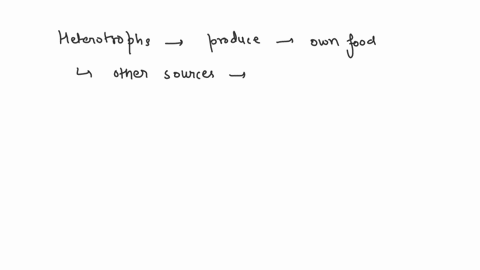 Heterotrophs → produce → own food
↳ other sources →